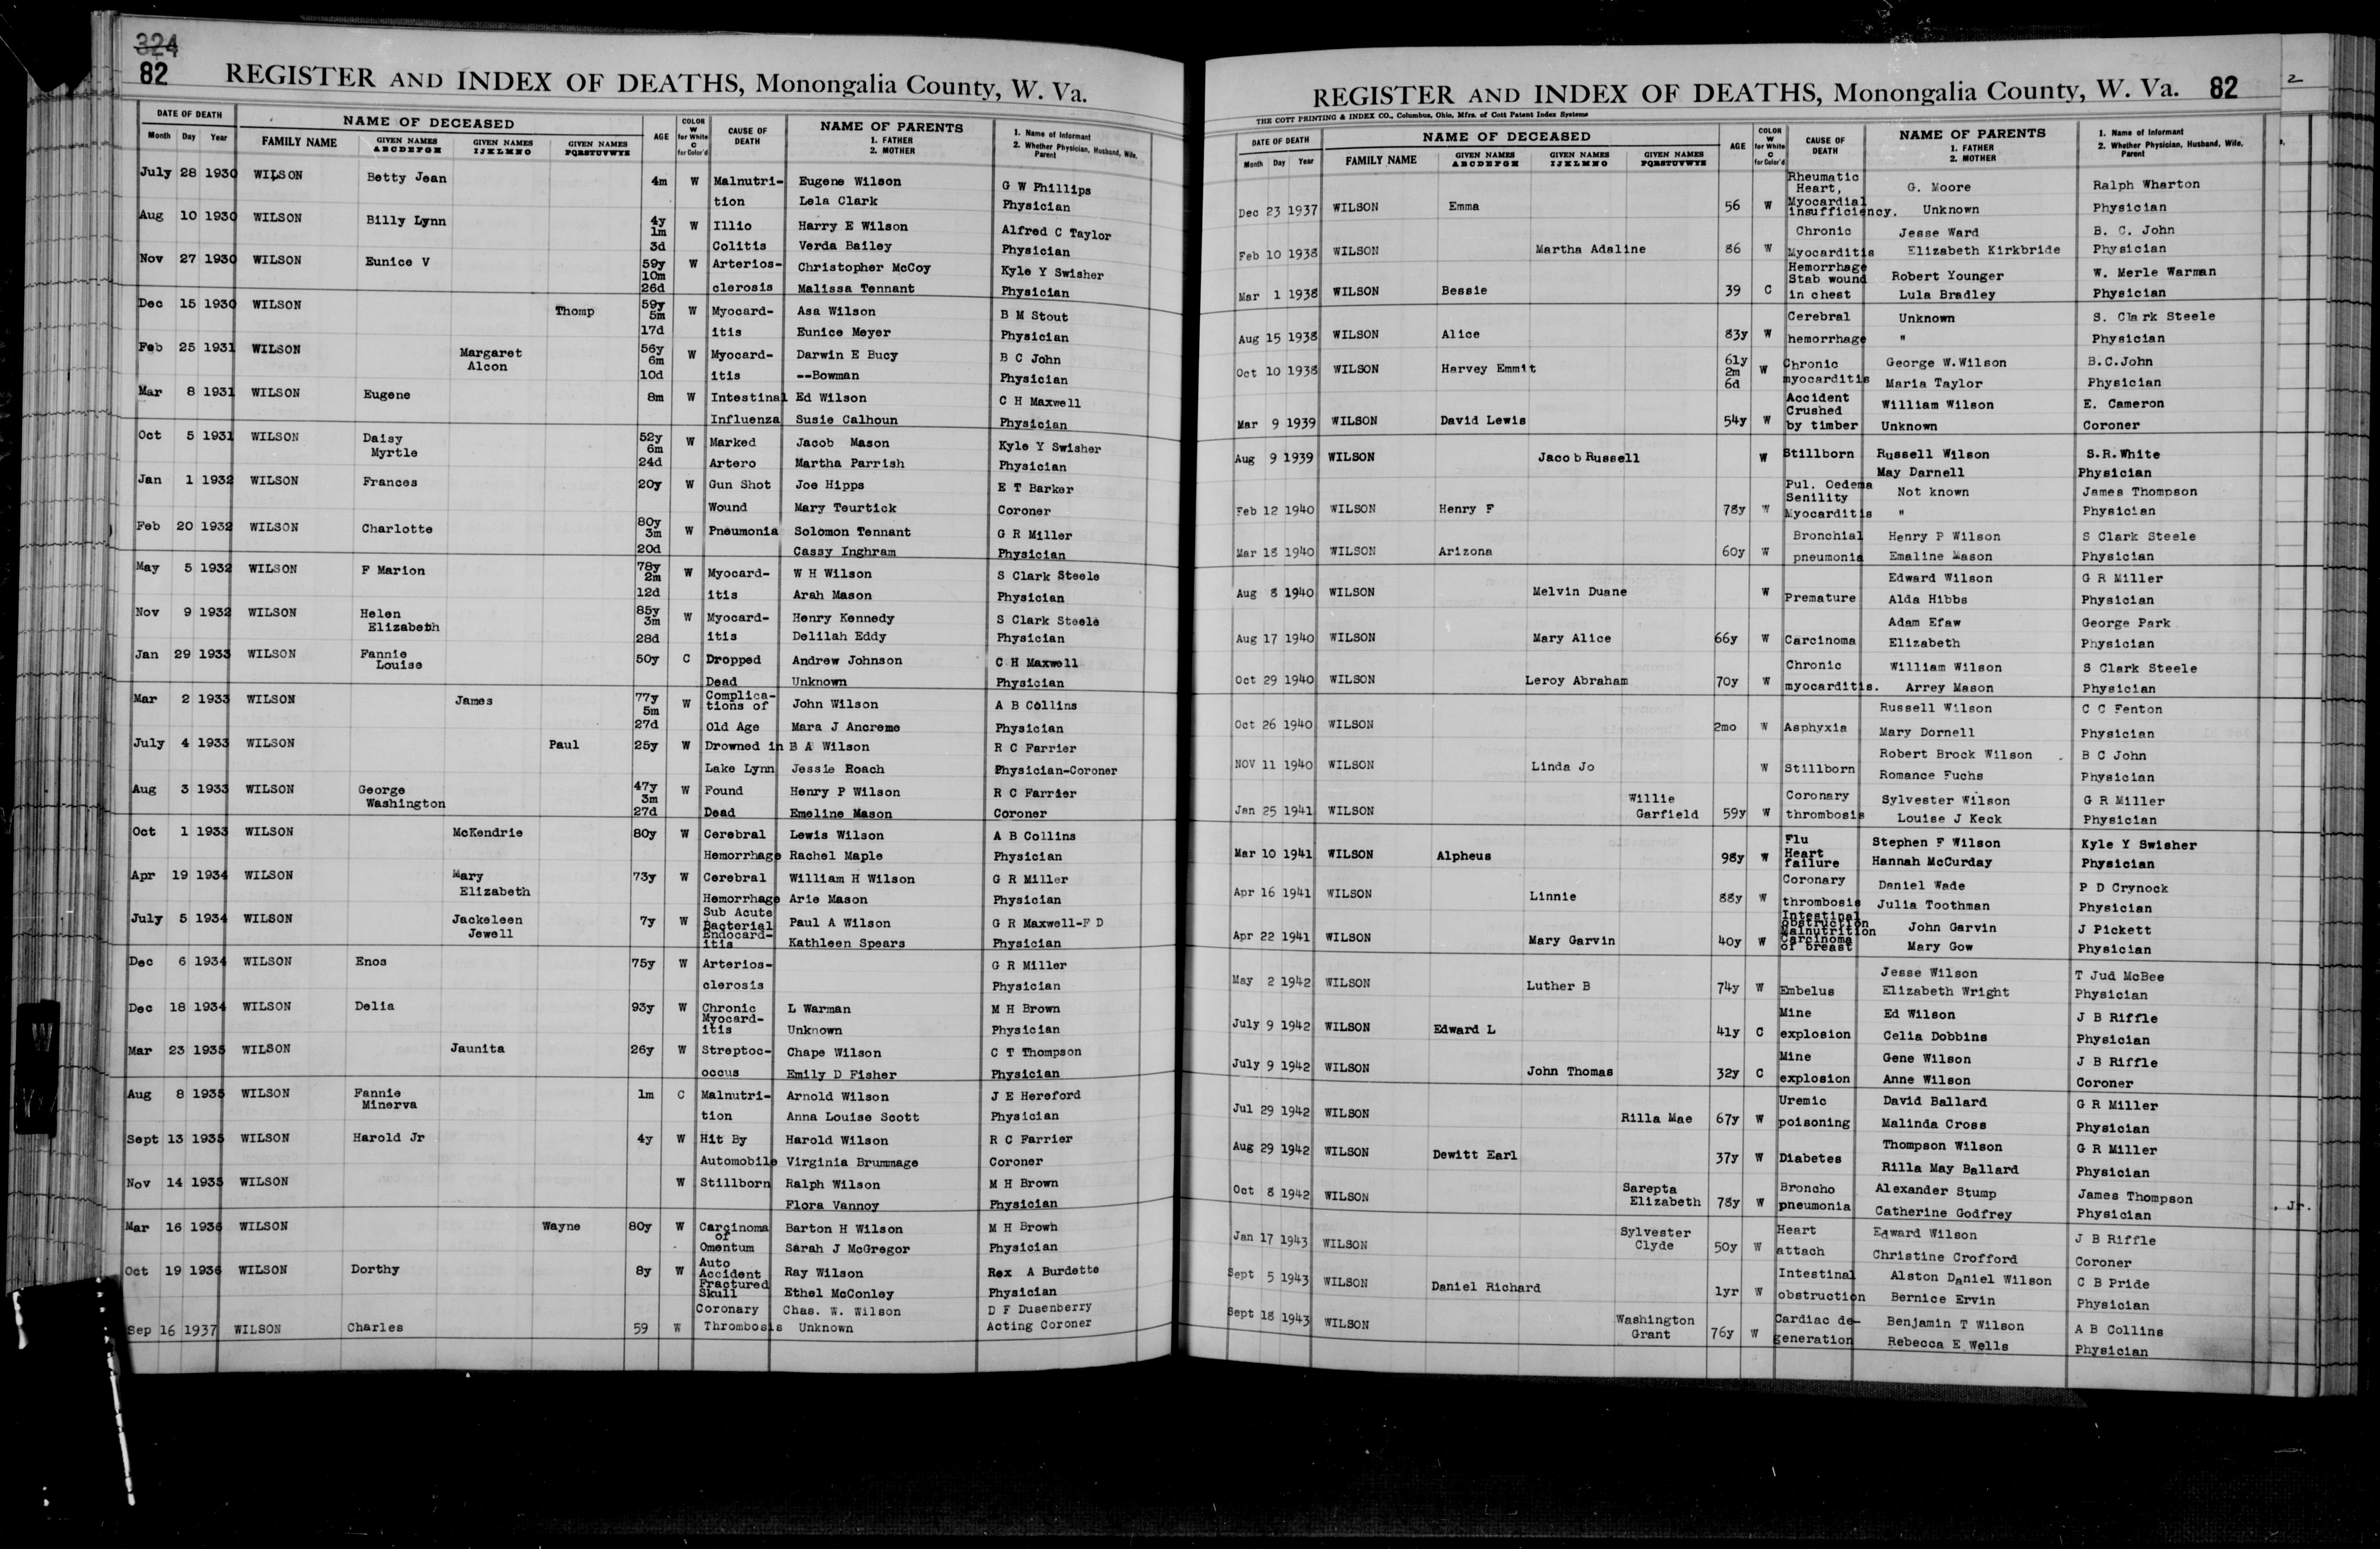 324
82
REGISTER AND INDEX OF DEATHS, Monongalia County, W. Va.
DATE OF DEATH NAME OF DECEASED AGE COLOR W for White C for Color'd CAUSE OF DEATH NAME OF PARENTS 1. FATHER 2. MOTHER 1. Name of Informant 2. Whether Physician, Husband, Wife, Parent
Month Day Year FAMILY NAME GIVEN NAMES ABCDEFGH GIVEN NAMES IJKLMNO GIVEN NAMES PQRSTUVWYZ
July 28 1930 WILSON Betty Jean 4m W Malnutri- Eugene Wilson G W Phillips
tion Lela Clark Physician
Aug 10 1930 WILSON Billy Lynn 4y 1m W Illio Harry E Wilson Alfred C Taylor
3d Colitis Verda Bailey Physician
Nov 27 1930 WILSON Eunice V 59y 10m W Arterios- Christopher McCoy Kyle Y Swisher
26d clerosis Malissa Tennant Physician
Dec 15 1930 WILSON Thomp 59y 5m W Myocard- Asa Wilson B M Stout
17d itis Eunice Meyer Physician
Feb 25 1931 WILSON Margaret Alcon 56y 6m W Myocard- Darwin E Bucy B C John
10d itis --Bowman Physician
Mar 8 1931 WILSON Eugene 8m W Intestinal Ed Wilson C H Maxwell
Influenza Susie Calhoun Physician
Oct 5 1931 WILSON Daisy Myrtle 52y 6m W Marked Jacob Mason Kyle Y Swisher
24d Artero Martha Parrish Physician
Jan 1 1932 WILSON Frances 20y W Gun Shot Joe Hipps E T Barker
Wound Mary Teurtick Coroner
Feb 20 1932 WILSON Charlotte 80y 3m W Pneumonia Solomon Tennant G R Miller
20d Cassy Inghram Physician
May 5 1932 WILSON F Marion 78y 2m W Myocard- W H Wilson S Clark Steele
12d itis Arah Mason Physician
Nov 9 1932 WILSON Helen Elizabeth 85y 3m W Myocard- Henry Kennedy S Clark Steele
28d itis Delilah Eddy Physician
Jan 29 1933 WILSON Fannie Louise 50y C Dropped Andrew Johnson C H Maxwell
Dead Unknown Physician
Mar 2 1933 WILSON James 77y 5m W Complica- tions of John Wilson A B Collins
27d Old Age Mara J Ancreme Physician
July 4 1933 WILSON Paul 25y W Drowned in B A Wilson R C Farrier
Lake Lynn Jessie Roach Physician-Coroner
Aug 3 1933 WILSON George Washington 47y 3m W Found Henry P Wilson R C Farrier
27d Dead Emeline Mason Coroner
Oct 1 1933 WILSON McKendrie 80y W Cerebral Lewis Wilson A B Collins
Hemorrhage Rachel Maple Physician
Apr 19 1934 WILSON Mary Elizabeth 73y W Cerebral William H Wilson G R Miller
Hemorrhage Arie Mason Physician
July 5 1934 WILSON Jackeleen Jewell 7y W Sub Acute Bacterial Paul A Wilson G R Maxwell-F D
Endocard- itis Kathleen Spears Physician
Dec 6 1934 WILSON Enos 75y W Arterios- G R Miller
clerosis Physician
Dec 18 1934 WILSON Delia 93y W Chronic L Warman M H Brown
Myocard- itis Unknown Physician
Mar 23 1935 WILSON Jaunita 26y W Streptoc- Chape Wilson C T Thompson
occus Emily D Fisher Physician
Aug 8 1935 WILSON Fannie Minerva 1m C Malnutri- Arnold Wilson J E Hereford
tion Anna Louise Scott Physician
Sept 13 1935 WILSON Harold Jr 4y W Hit By Harold Wilson R C Farrier
Automobile Virginia Brummage Coroner
Nov 14 1935 WILSON W Stillborn Ralph Wilson M H Brown
Flora Vannoy Physician
Mar 16 1936 WILSON Wayne 80y W Carcinoma of Barton H Wilson M H Brown
Omentum Sarah J McGregor Physician
Oct 19 1936 WILSON Dorthy 8y W Auto Accident Ray Wilson Rex A Burdette
Fractured Skull Ethel McConley Physician
Coronary Chas. W. Wilson D F Dusenberry
Sep 16 1937 WILSON Charles 59 W Thrombosis Unknown Acting Coroner
REGISTER AND INDEX OF DEATHS, Monongalia County, W. Va. 82
2
THE COTT PRINTING & INDEX CO., Columbus, Ohio, Mfrs. of Cott Patent Index Systems
DATE OF DEATH NAME OF DECEASED AGE COLOR W for White C for Color'd CAUSE OF DEATH NAME OF PARENTS 1. FATHER 2. MOTHER 1. Name of Informant 2. Whether Physician, Husband, Wife, Parent
Month Day Year FAMILY NAME GIVEN NAMES ABCDEFGH GIVEN NAMES IJKLMNO GIVEN NAMES PQRSTUVWYZ
Rheumatic Heart, G. Moore Ralph Wharton
Dec 23 1937 WILSON Emma 56 W Myocardial insufficiency. Unknown Physician
Chronic Jesse Ward B. C. John
Feb 10 1938 WILSON Martha Adaline 86 W Myocarditis Elizabeth Kirkbride Physician
Hemorrhage Stab wound Robert Younger W. Merle Warman
Mar 1 1938 WILSON Bessie 39 C in chest Lula Bradley Physician
Cerebral Unknown S. Clark Steele
Aug 15 1938 WILSON Alice 83y W hemorrhage " Physician
Oct 10 1938 WILSON Harvey Emmit 61y 2m 6d W Chronic George W. Wilson B.C.John
myocarditis Maria Taylor Physician
Accident Crushed William Wilson E. Cameron
Mar 9 1939 WILSON David Lewis 54y W by timber Unknown Coroner
Aug 9 1939 WILSON Jacob Russell W Stillborn Russell Wilson S.R.White
May Darnell Physician
Pul. Oedema Senility Not known James Thompson
Feb 12 1940 WILSON Henry F 78y W Myocarditis " Physician
Bronchial Henry P Wilson S Clark Steele
Mar 18 1940 WILSON Arizona 60y W pneumonia Emaline Mason Physician
Edward Wilson G R Miller
Aug 8 1940 WILSON Melvin Duane W Premature Alda Hibbs Physician
Adam Efaw George Park
Aug 17 1940 WILSON Mary Alice 66y W Carcinoma Elizabeth Physician
Chronic William Wilson S Clark Steele
Oct 29 1940 WILSON Leroy Abraham 70y W myocarditis. Arrey Mason Physician
Russell Wilson C C Fenton
Oct 26 1940 WILSON 2mo W Asphyxia Mary Dornell Physician
Robert Brock Wilson B C John
NOV 11 1940 WILSON Linda Jo W Stillborn Romance Fuchs Physician
Willie Coronary Sylvester Wilson G R Miller
Jan 25 1941 WILSON Garfield 59y W thrombosis Louise J Keck Physician
Flu Stephen F Wilson Kyle Y Swisher
Mar 10 1941 WILSON Alpheus 98y W Heart failure Hannah McCurday Physician
Coronary Daniel Wade P D Crynock
Apr 16 1941 WILSON Linnie 88y W thrombosis Julia Toothman Physician
Intestinal obstruction Malnutrition John Garvin J Pickett
Apr 22 1941 WILSON Mary Garvin 40y W Carcinoma of breast Mary Gow Physician
Jesse Wilson T Jud McBee
May 2 1942 WILSON Luther B 74y W Embelus Elizabeth Wright Physician
Mine Ed Wilson J B Riffle
July 9 1942 WILSON Edward L 41y C explosion Celia Dobbins Physician
Mine Gene Wilson J B Riffle
July 9 1942 WILSON John Thomas 32y C explosion Anne Wilson Coroner
Uremic David Ballard G R Miller
Jul 29 1942 WILSON Rilla Mae 67y W poisoning Malinda Cross Physician
Thompson Wilson G R Miller
Aug 29 1942 WILSON Dewitt Earl 37y W Diabetes Rilla May Ballard Physician
Sarepta Broncho Alexander Stump James Thompson
Oct 8 1942 WILSON Elizabeth 78y W pneumonia Catherine Godfrey Physician
, Jr.
Sylvester Heart Edward Wilson J B Riffle
Jan 17 1943 WILSON Clyde 50y W attach Christine Crofford Coroner
Intestinal Alston Daniel Wilson C B Pride
Sept 5 1943 WILSON Daniel Richard 1yr W obstruction Bernice Ervin Physician
Washington Cardiac de- Benjamin T Wilson A B Collins
Sept 18 1943 WILSON Grant 76y W generation Rebecca E Wells Physician
W